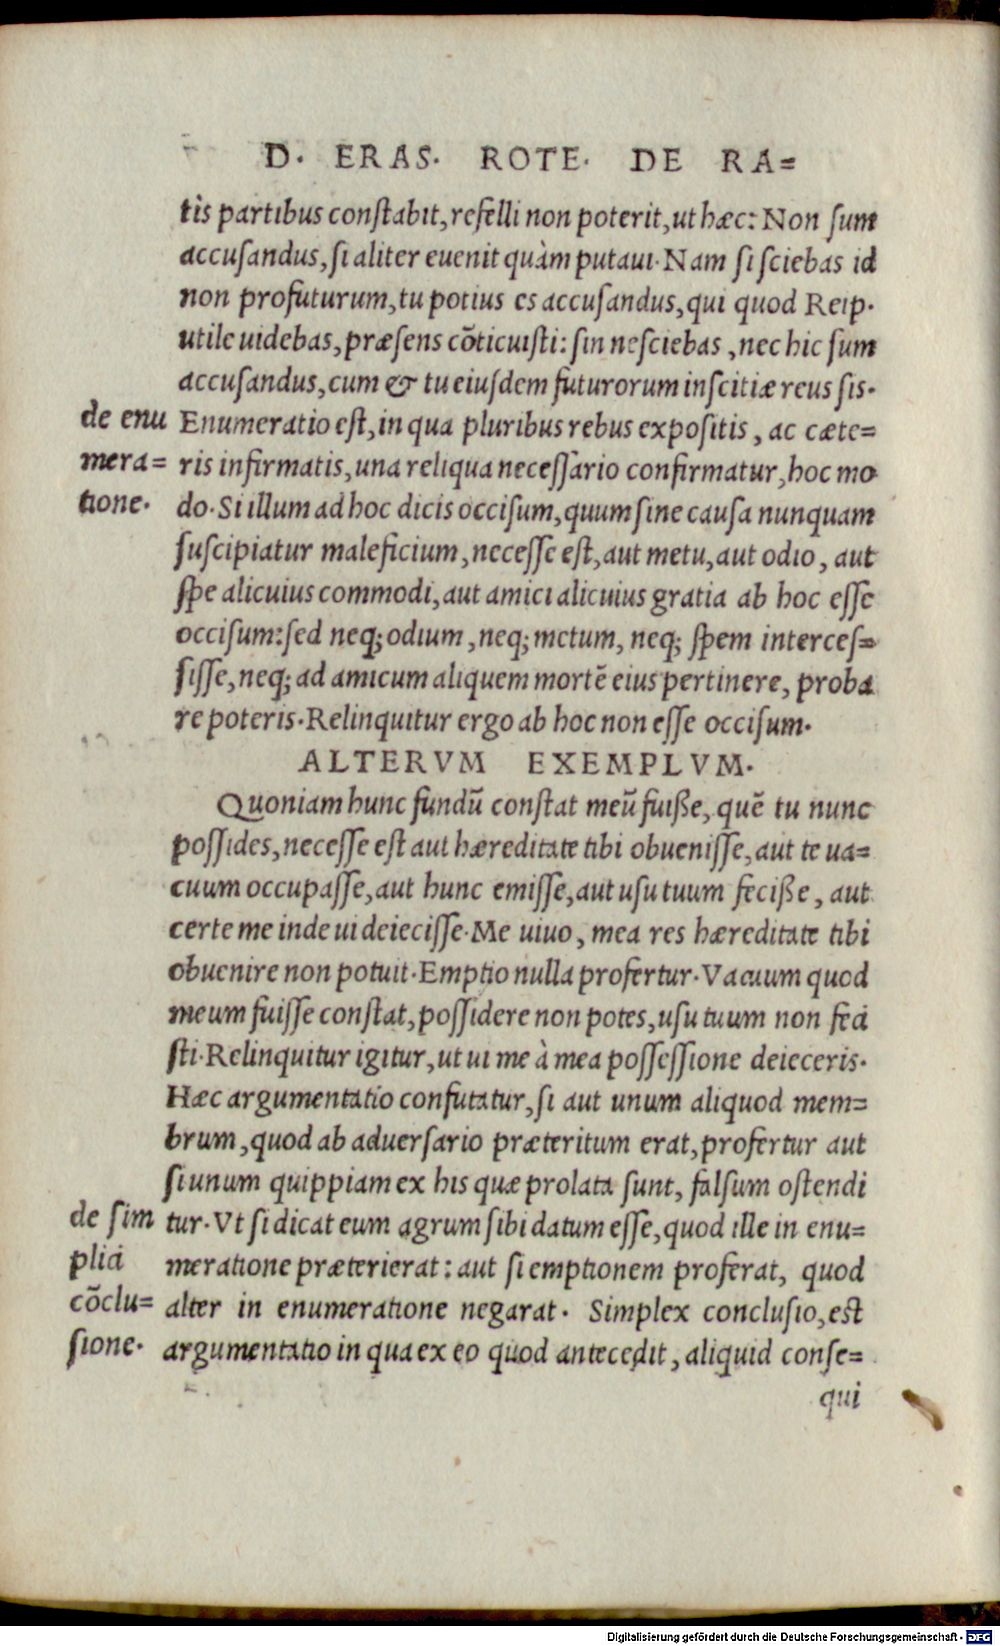 D. ERAS. ROTE. DE RA=
tis partibus constabit, refelli non poterit, ut hæc: Non sum
accusandus, si aliter euenit quàm putaui. Nam si sciebas id
non profuturum, tu potius es accusandus, qui quod Reip.
utile uidebas, præsens cōticuisti: sin nesciebas, nec hic sum
accusandus, cum & tu eiusdem futurorum inscitiæ reus sis.
de enu Enumeratio est, in qua pluribus rebus expositis, ac cæte=
mera= ris infirmatis, una reliqua necessario confirmatur, hoc mo
tione. do. Si illum ad hoc dicis occisum, quum sine causa nunquam
suscipiatur maleficium, necesse est, aut metu, aut odio, aut
spe alicuius commodi, aut amici alicuius gratia ab hoc esse
occisum: sed neq; odium, neq; metum, neq; spem interces=
sisse, neq; ad amicum aliquem mortē eius pertinere, proba
re poteris. Relinquitur ergo ab hoc non esse occisum.
ALTERVM EXEMPLVM.
Quoniam hunc fundū constat meū fuiße, quē tu nunc
possides, necesse est aut hæreditate tibi obuenisse, aut te ua=
cuum occupasse, aut hunc emisse, aut usu tuum feciße, aut
certe me inde ui deiecisse. Me uiuo, mea res hæreditate tibi
obuenire non potuit. Emptio nulla profertur. Vacuum quod
meum fuisse constat, possidere non potes, usu tuum non feci
sti. Relinquitur igitur, ut ui me à mea possessione deieceris.
Hæc argumentatio confutatur, si aut unum aliquod mem=
brum, quod ab aduersario præteritum erat, profertur aut
si unum quippiam ex his quæ prolata sunt, falsum ostendi
de sim tur. Vt si dicat eum agrum sibi datum esse, quod ille in enu=
plici meratione præterierat: aut si emptionem proferat, quod
cōclu= alter in enumeratione negarat. Simplex conclusio, est
sione. argumentatio in qua ex eo quod antecedit, aliquid conse=
qui
Digitalisierung gefördert durch die Deutsche Forschungsgemeinschaft - DFG